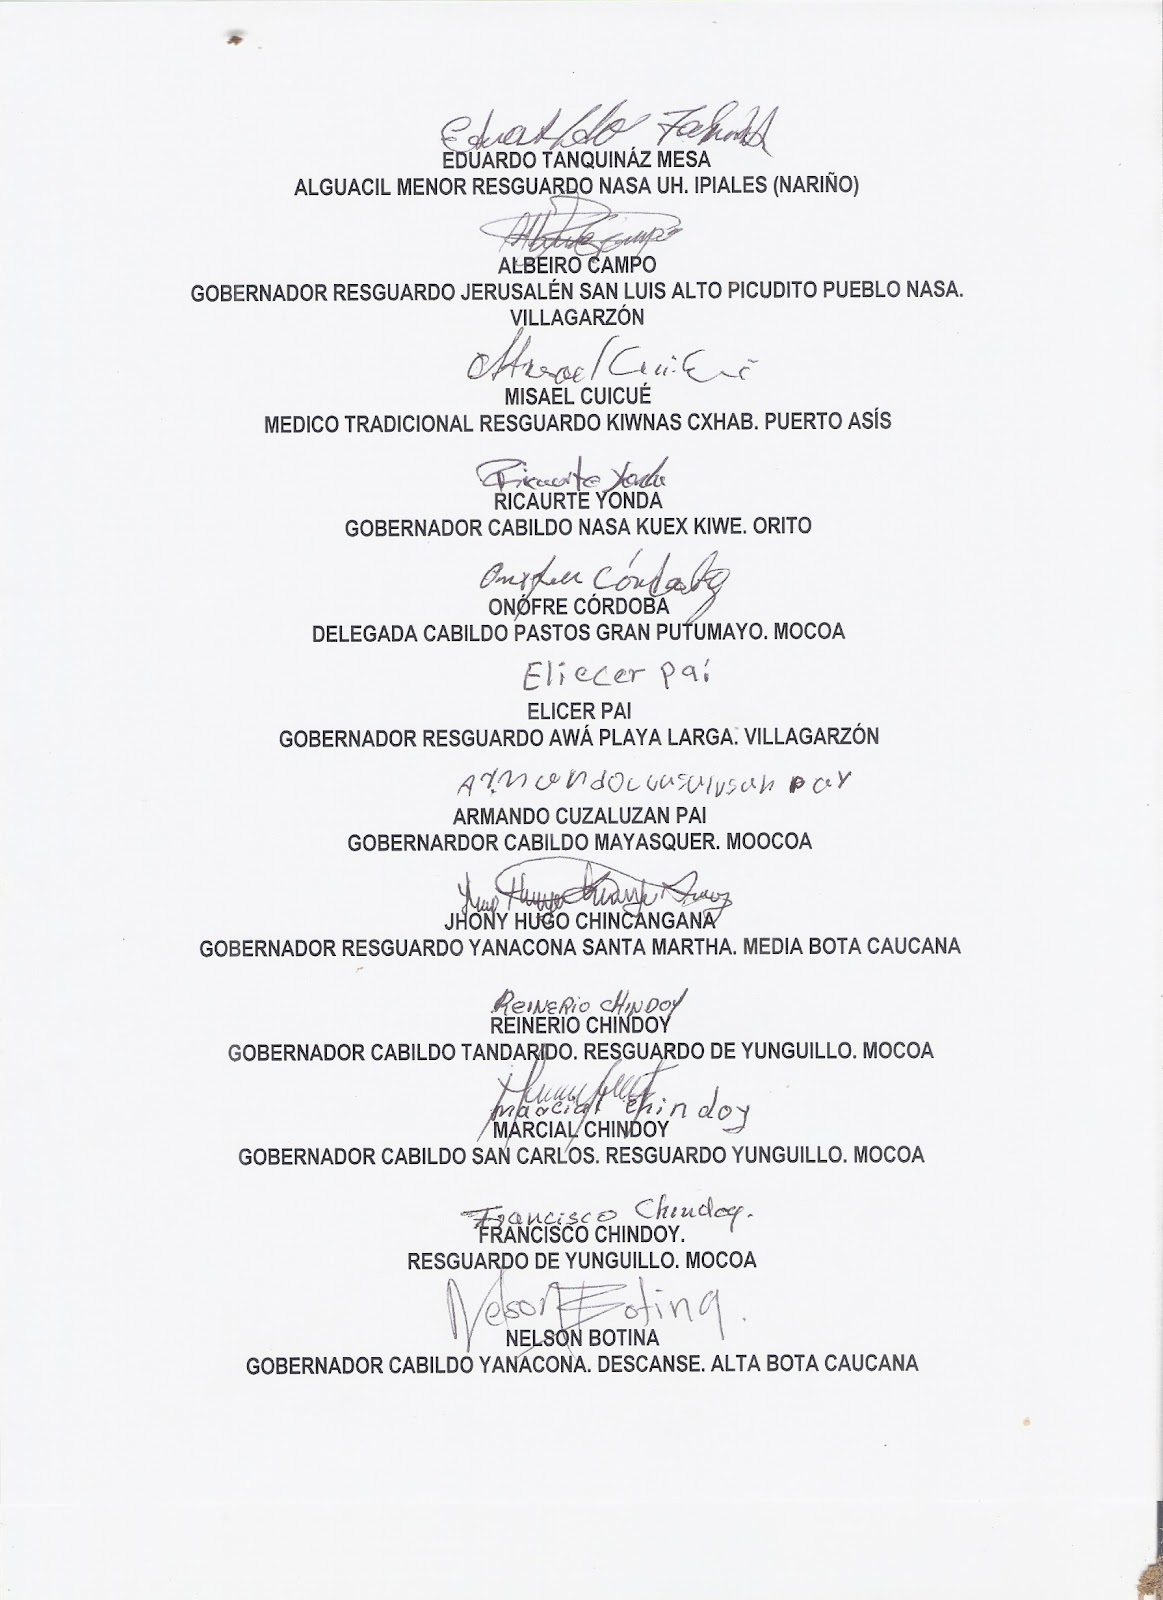 EDUARDO TANQUINÁZ MESA
ALGUACIL MENOR RESGUARDO NASA UH. IPIALES (NARIÑO)
ALBEIRO CAMPO
GOBERNADOR RESGUARDO JERUSALÉN SAN LUIS ALTO PICUDITO PUEBLO NASA.
VILLAGARZÓN
MISAEL CUICUÉ
MEDICO TRADICIONAL RESGUARDO KIWNAS CXHAB. PUERTO ASÍS
Ricaurte Yonda
RICAURTE YONDA
GOBERNADOR CABILDO NASA KUEX KIWE. ORITO
Córdoba
ONÓFRE CÓRDOBA
DELEGADA CABILDO PASTOS GRAN PUTUMAYO. MOCOA
Eliecer Paí
ELICER PAI
GOBERNADOR RESGUARDO AWÁ PLAYA LARGA. VILLAGARZÓN
ARMANDO CUZALUZAN PAI
GOBERNARDOR CABILDO MAYASQUER. MOOCOA
JHONY HUGO CHINCANGANA
GOBERNADOR RESGUARDO YANACONA SANTA MARTHA. MEDIA BOTA CAUCANA
REINERIO CHINDOY
REINERIO CHINDOY
GOBERNADOR CABILDO TANDARIDO. RESGUARDO DE YUNGUILLO. MOCOA
marcial chindoy
MARCIAL CHINDOY
GOBERNADOR CABILDO SAN CARLOS. RESGUARDO YUNGUILLO. MOCOA
Francisco Chindoy.
FRANCISCO CHINDOY.
RESGUARDO DE YUNGUILLO. MOCOA
Nelson Botina.
NELSON BOTINA
GOBERNADOR CABILDO YANACONA. DESCANSE. ALTA BOTA CAUCANA